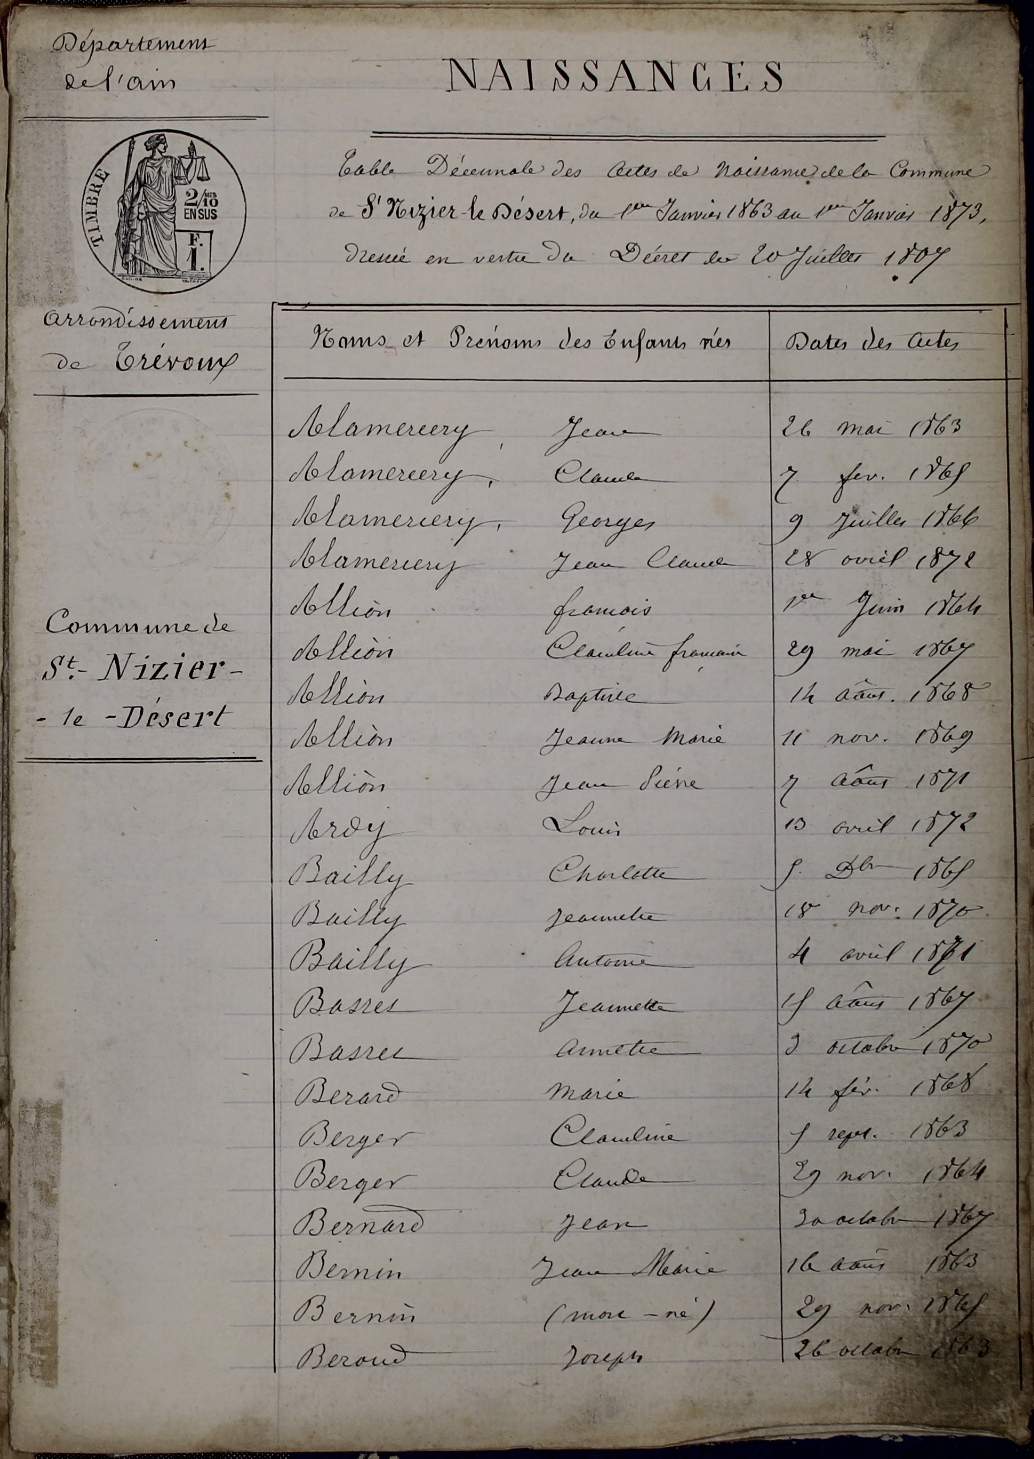 Département
de l'ain
NAISSANCES
TIMBRE
2/10 EN SUS
F.
1.
Table Décennale des Actes de Naissance de la Commune
de St Nizier-le Désert, du 1er Janvier 1863 au 1er Janvier 1873,
dressée en vertu du Décret du 20 Juillet 1807
Arrondissement
de Trévoux
Commune de
St.- Nizier-
- le -Désert
Noms et Prénoms des Enfants nés Dates des Actes
Alamercery Jean 26 mai 1863
Alamercery, Claude 7 fev. 1865
Alamercery, Georges 9 Juillet 1866
Alamercery Jean Claude 28 avril 1872
Allion francois 1er Juin 1864
Allion Claudine francoise 29 mai 1867
Allion Baptiste 14 aôut. 1868
Allion Jeanne Marie 11 nov. 1869
Allion Jean Piérre 7 Aôut 1871
Ardy Louis 13 avril 1872
Bailly Charlotte 5. Dbre 1865
Bailly Jeannette 18 nov. 1870
Bailly Antoine 4 avril 1871
Basset Jeannette 15 Aôut 1867
Basset Annette 3 octobre 1870
Berard Marie 14 fév. 1868
Berger Claudine 5 sept. 1863
Berger Claude 29 nov. 1864
Bernard Jean 30 octobre 1867
Bernin Jean Marie 16 aôut 1863
Bernin (mort-né) 29 nov. 1865
Beroud Joseph 26 octobre 1863